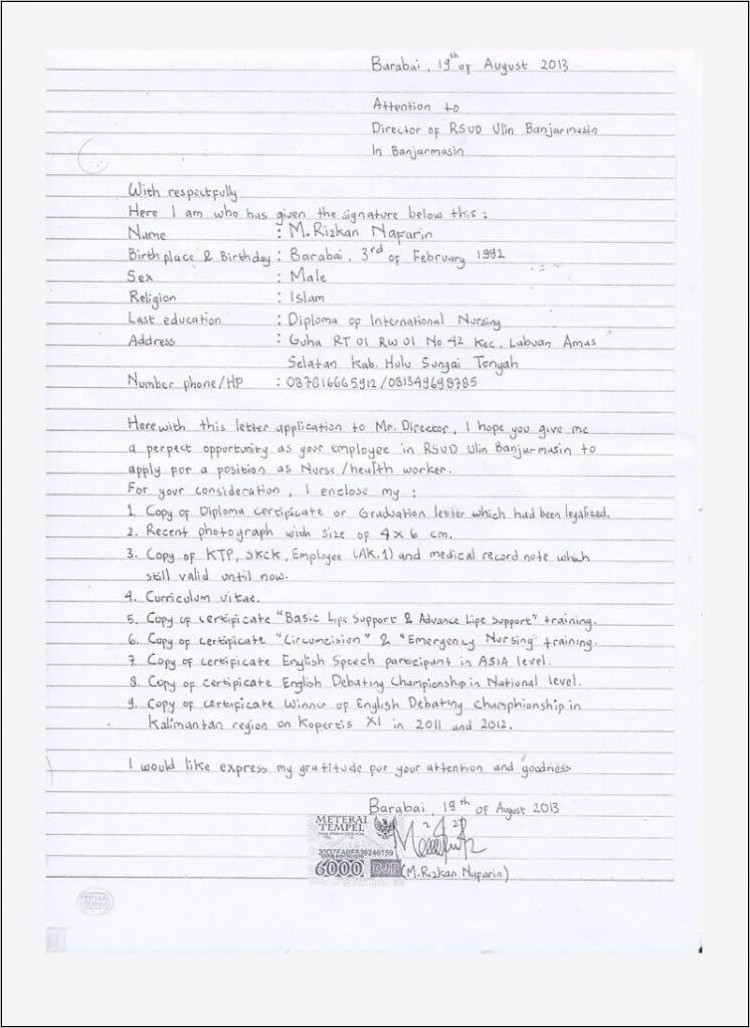 Barabai, 19th of August 2013
Attention to
Director of RSUD Ulin Banjarmasin
In Banjarmasin
With respectfully
Here I am who has given the signature below this :
Name : M. Rizkan Naparin
Birthplace & Birthday : Barabai, 3rd of February 1992
Sex : Male
Religion : Islam
Last education : Diploma of International Nursing
Address : Guha RT 01 RW 01 No 42 Kec. Labuan Amas
Selatan Kab. Hulu Sungai Tengah
Number phone/HP : 087816665912 /081349698785
Herewith this letter application to Mr. Director, I hope you give me
a perpect opportunity as your employee in RSUD Ulin Banjarmasin to
apply for a position as Nurse /health worker.
For your consideration, I enclose my :
1. Copy of Diploma certipicate or Graduation letter which had been legalized.
2. Recent photograph with size of 4x6 cm.
3. Copy of KTP, SKCK, Employee (AK.1) and medical record note which
still valid until now.
4. Curriculum vitae.
5. Copy of certipicate "Basic Lipe Support & Advance Lipe Support" training.
6. Copy of certipicate "Circumcision" & "Emergency Nursing" training.
7. Copy of certipicate English Speech participant in ASIA level.
8. Copy of certipicate English Debating Championship in National level.
9. Copy of certipicate Winner of English Debating Champhionship in
Kalimantan region on Kopertis XI in 2011 and 2012.
I would like express my gratitude for your attention and goodness
Barabai, 19th of August 2013
METERAI
TEMPEL
6000
(M. Rizkan Naparin)